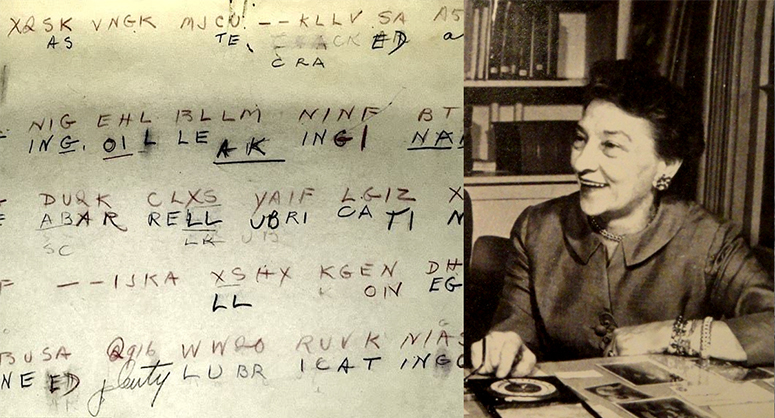 XQSK VNGK MJCU -- KLLV SA
AS TE, ED a
CRA
NIG EHL BLLM NINF BT
ING, OIL LEAK ING, NAN
DUQK CLXS YAIF LGIZ X
ABAR RELL UBRI CA TI N
SC LR UB
F -- ISKA XSHX KGEN DH
LL ON EG
BUSA WWQO RUVK NIAS
NE ED plenty LUBR ICAT ING